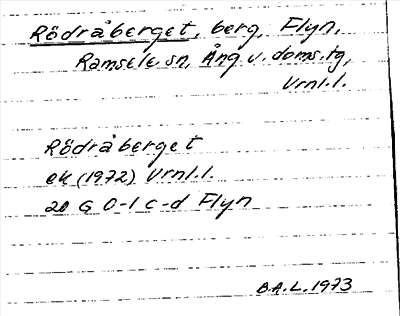 Rödråberget, berg, Flyn,
Ramsele sn, Ång. v. doms.tg,
Vrnl.l.
Rödråberget
ek (1972) Vrnl.l.
20 G 0-1 c-d Flyn
B.A.L. 1973